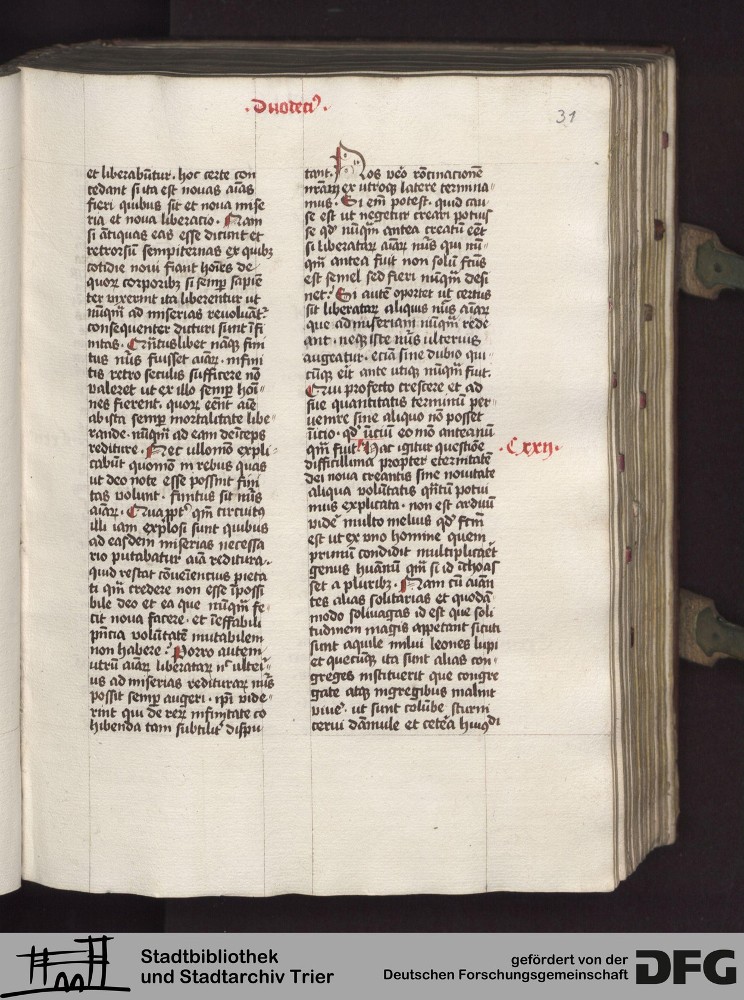 ·Duodeci⁹·
31
et liberabūtur · hoc certe con
cedant si ita est nouas aīas
fieri quibus sit et noua mise
ria et noua liberatio · Nam
si ātiquas eas esse dicunt et
retrorsū sempiternas ex quibꝫ
cotidie noui fiant hoīes de
quoꝝ corporibꝫ si semp̄ sapiē
ter vixerint ita liberentur ut
nūq̄m ad miserias reuoluāt᷑
consequenter dicturi sunt īfi
nitas · Qn̄tuslibet nāqꝫ fini
tus nūs fuisset aīaꝝ · infini
tis retro seculis sufficere nō
valeret ut ex illo semp̄ hoī
nes fierent · quoꝝ eēnt aīe
ab ista semp̄ mortalitate libe
rande · nūq̄m ad eam deīceps
rediture · Nec ullomō expli
cabūt quomō in rebus quas
ut deo note esse possint fini
tas volunt · finitus sit nūs
aīaꝝ · Quappt̄ q̄m circuitꝯ
illi iam explosi sunt quibus
ad easdem miserias necessa
rio putabatur aīa reditura ·
quid restat cōueīencius pieta
ti q̄m credere non esse īpossi
bile deo et ea que nūq̄m fe
cit noua facere · et īeffabili
pn̄cia volūtatē mutabilem
non habere · Porro autem
utrū aīaꝝ liberataꝝ nͨ ulteri
us ad miserias redituraꝝ nūs
possit semp̄ augeri · ip̄i vide
rint qui de reꝝ infinitate co
hibenda tam subtilit᷑ dispu
tant · Nos vēo rōcinacionē
nr̄am ex utroqꝫ latere termina
mus · Si em̄ potest · quid cau
se est ut negetur creari potuis
se qd̓ nūq̄m antea creatū eēt
si liberataꝝ aīaꝝ nūs qui nū
q̄m antea fuit non solū fc̄us
est semel sed fieri nūq̄m desi
net · Si autē oportet ut certus
sit liberataꝝ aliquis nūs aīaꝝ
que ad miseriam nūq̄m rede
ant · neqꝫ iste nūs ulterius
augeatur · eciā sine dubio qui
cūqꝫ eīt ante utiqꝫ nūq̄m fuit ·
Qui profecto crescere et ad
sue quantitatis terminū per
uenire sine aliquo nō posset
īicio · qd̓ īiciū eo mō antea nū
q̄m fuit · Hac igitur questiōe ·Cxxij·
difficillima propter eternitatē
dei noua creantis sine nouitate
aliqua volūtatis qn̄tū potui
mus explicata · non est arduū
vide᷑ multo melius qd̓ fc̄m
est ut ex vno homine quem
primū condidit multiplicaret
genus huānū q̄m si id īchoas
set a pluribꝫ · Nam cū aīan
tes alias solitarias et quodā
modo soliuagas id est que soli
tudinem magis appetant sicuti
sunt aquile milui leones lupi
et quecūqꝫ ita sunt alias con
greges instituerit que congre
gate atqꝫ in gregibus malint
viue᷑ · ut sunt colūbe sturni
cerui dāmule et cetēa hui⁹di
Stadtbibliothek
und Stadtarchiv Trier
gefördert von der
Deutschen Forschungsgemeinschaft
DFG